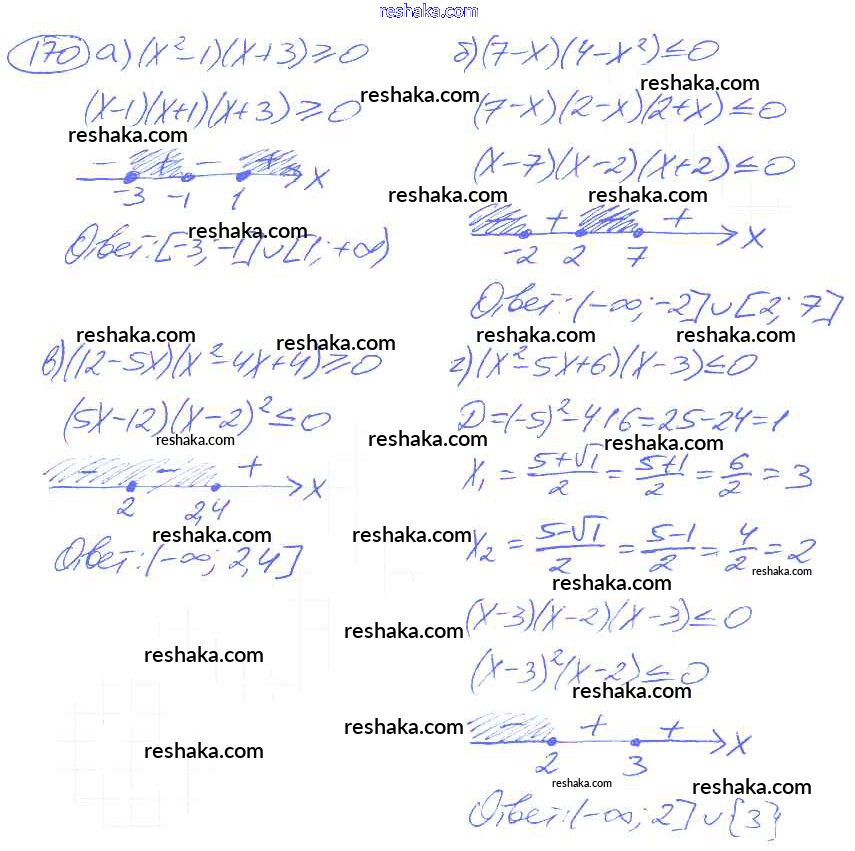 reshaka.com
170 а) (x²-1)(x+3)≥0
(x-1)(x+1)(x+3)≥0
reshaka.com
- + - + x
-3 -1 1
reshaka.com
Ответ: [-3; -1]∪[1; +∞)
б) (7-x)(4-x²)≤0
reshaka.com
reshaka.com
(7-x)(2-x)(2+x)≤0
(x-7)(x-2)(x+2)≤0
reshaka.com reshaka.com
- + - + x
-2 2 7
Ответ: (-∞; -2]∪[2; 7]
reshaka.com reshaka.com
в) (12-5x)(x²-4x+4)≥0
(5x-12)(x-2)²≤0
reshaka.com
- - + x
2 2,4
reshaka.com
Ответ: (-∞; 2,4]
reshaka.com reshaka.com
г) (x²-5x+6)(x-3)≤0
D=(-5)²-4·1·6=25-24=1
reshaka.com reshaka.com
x₁ = (5+√1)/2 = (5+1)/2 = 6/2 = 3
reshaka.com
x₂ = (5-√1)/2 = (5-1)/2 = 4/2 = 2
reshaka.com
reshaka.com
(x-3)(x-2)(x-3)≤0
reshaka.com
reshaka.com
(x-3)²(x-2)≤0
reshaka.com
- + + x
reshaka.com
reshaka.com
2 3
reshaka.com
reshaka.com
Ответ: (-∞; 2]∪{3}